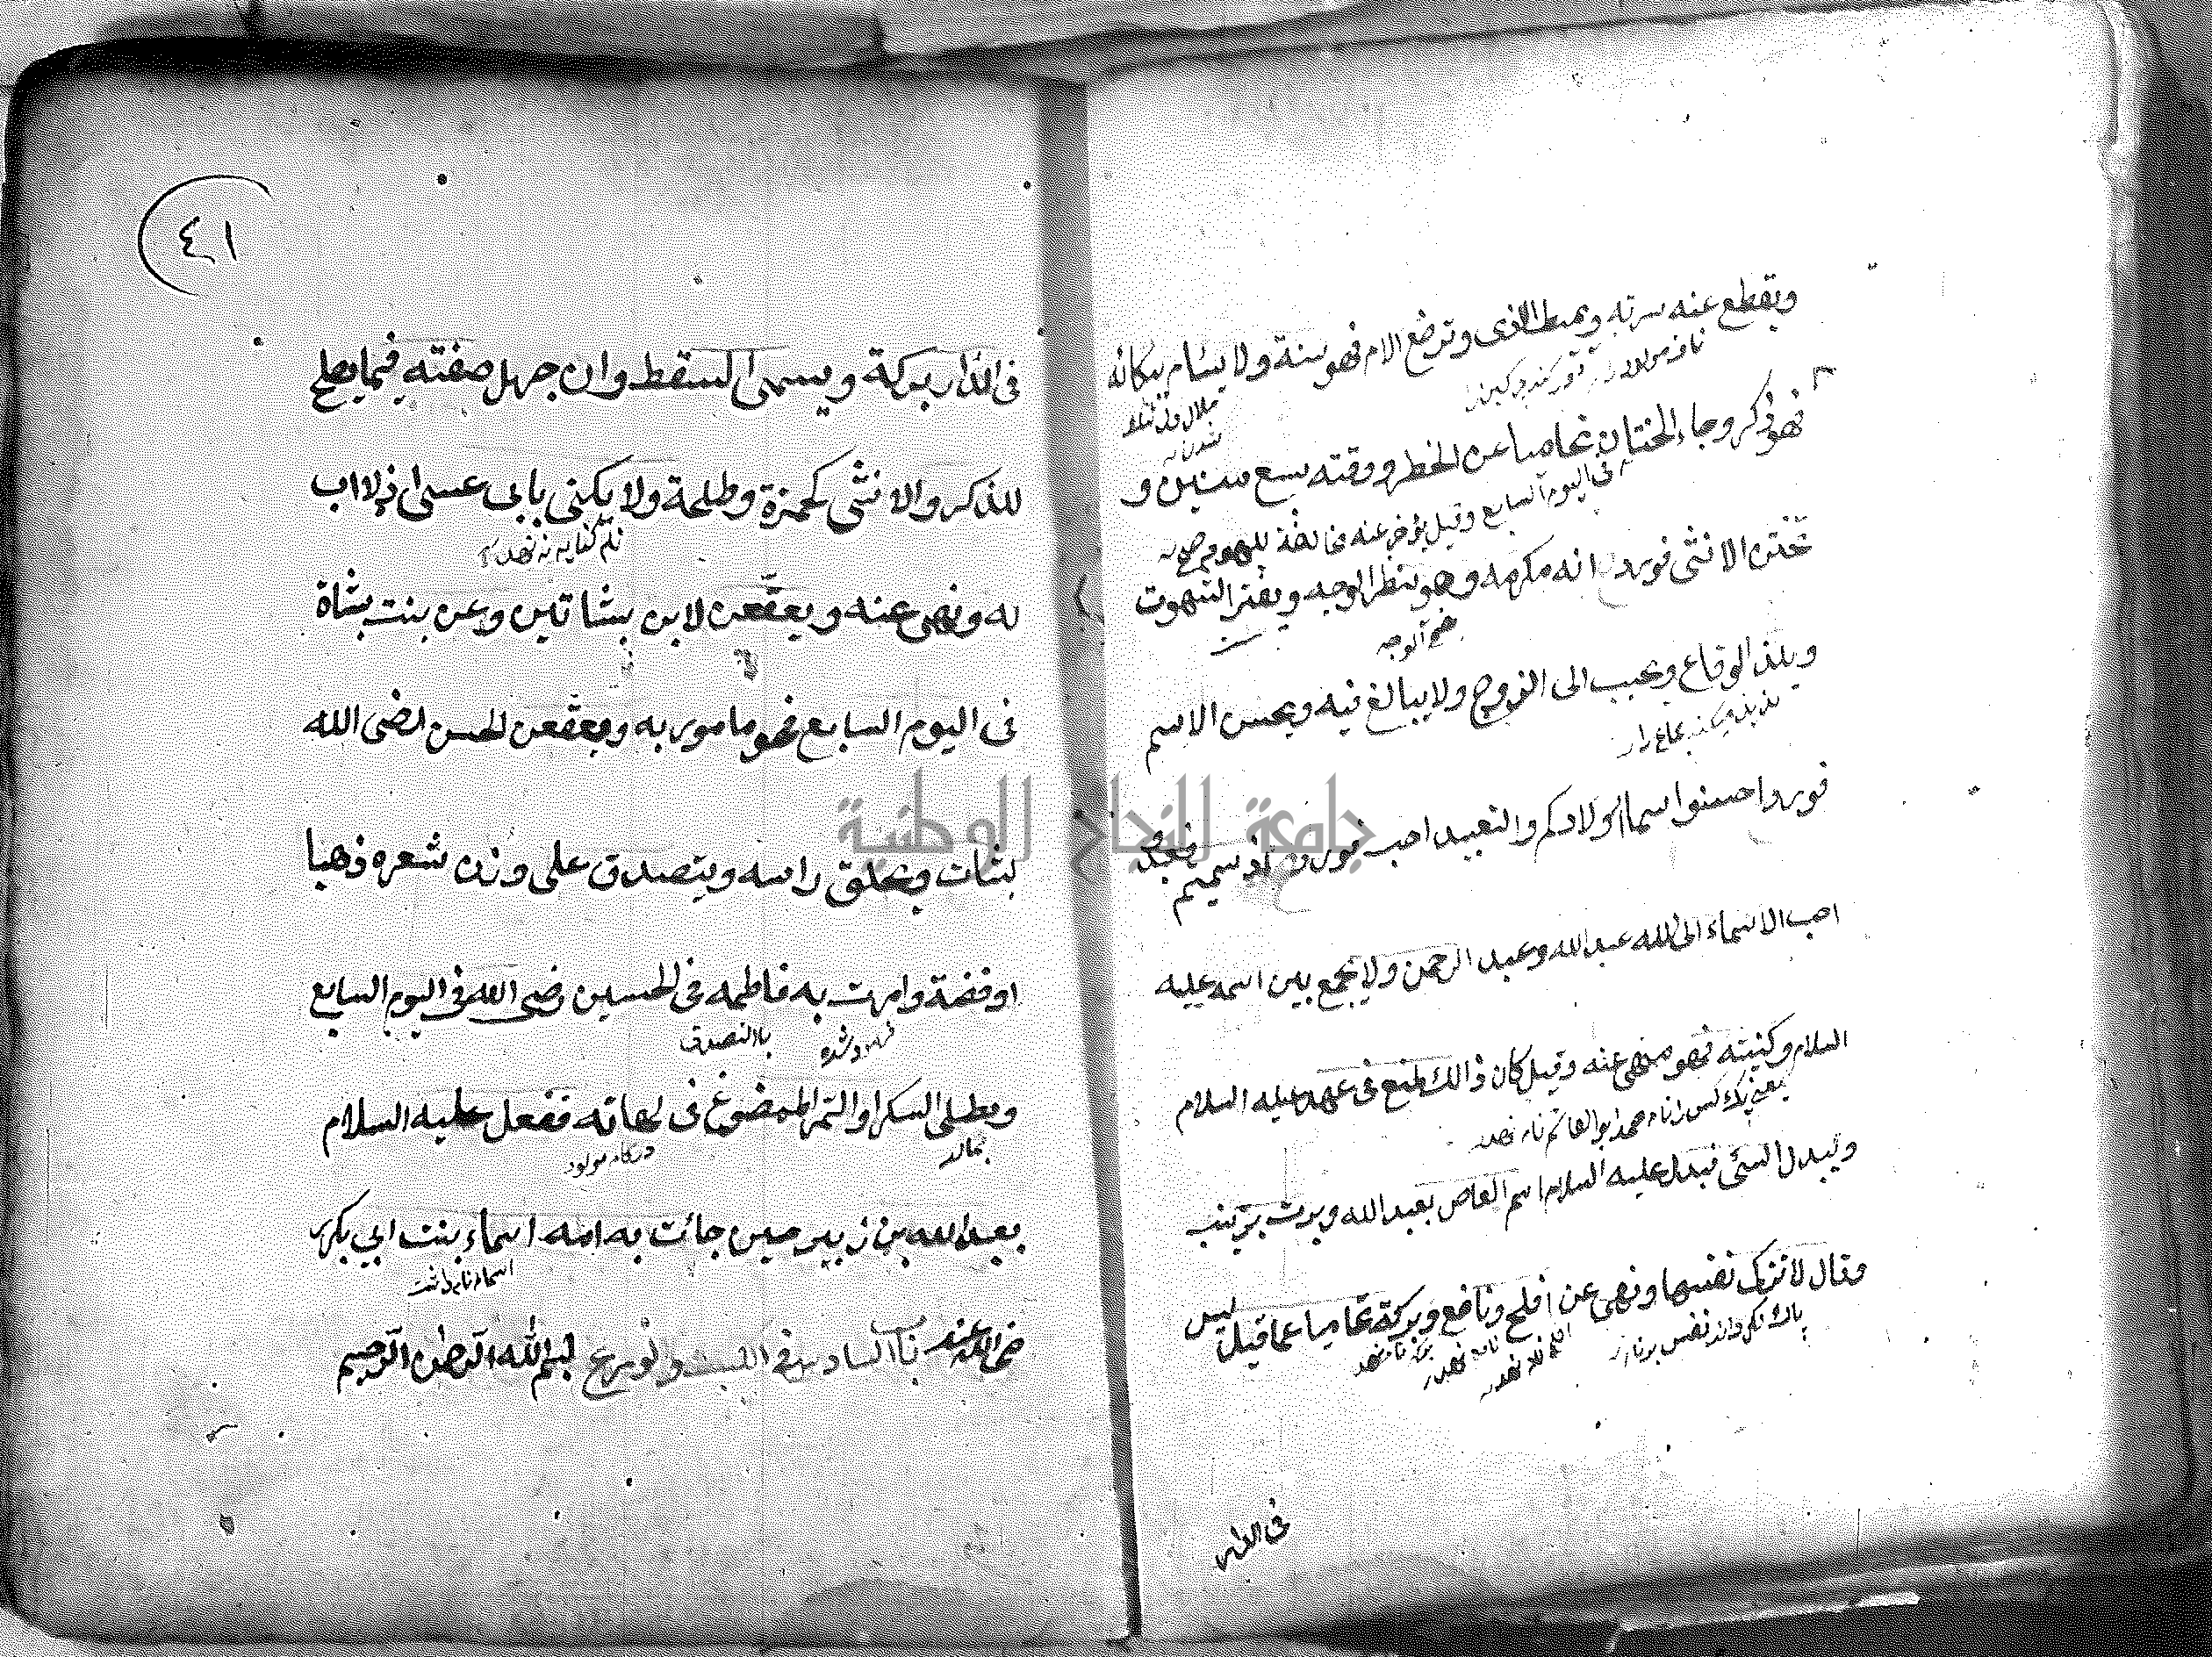 ويقطع عنه سرته ويميط الاذى وترضع الام فهو سنة ولا يسام ببكائه
ناف مولود
فهو ذكر وجاء الختان تحاميا عن الخطر ووقته سبع سنين و
فى اليوم السابع وقيل يؤخر عنه مخالفة لليهود صح
تختن الانثى فورد انه مكرمة وهو ينظر الوجه ويفتر الشهوت
ويلذ الوقاع ويحبب الى الزوج ولا يبالغ فيه ويحسن الاسم
فورد احسنوا اسماء اولادكم والتعبيد احب فورد اذ سميتم فعبدوا
احب الاسماء الى الله عبد الله وعبد الرحمن ولا يجمع بين اسمه عليه
السلام وكنيته فهو منهى عنه وقيل كان ذالك لمنع فى عهده عليه السلام
يعنى يك كس را نام محمد ابو القاسم نام نهد
ويبدل السئ فبدل عليه السلام اسم العاص بعبد الله وبرت بزينب
وقال لا تزك نفسها ونهى عن افلح ونافع وبركة تحاميا عما قيل ليس
فى الدار
٤١
فى الدار بركة ويسمى السقط وان جهل صفته فيما يصلح
للذكر والانثى كحمزة وطلحة ولا يكنى بابى عسى اذ لا اب
له ونهى عنه ويعق عن لابن بشاتين وعن بنت بشاة
فى اليوم السابع فهو مامور به ويعق عن الحسن رضى الله
بشات ويحلق راسه ويتصدق على وزن شعره ذهبا
او فضة وامرت به فاطمه فى الحسين رضى الله فى اليوم السابع
فرمود شده بالتصدق
ويطلى السكر او التمر الممضوغ فى لهاته ففعل عليه السلام
بمالد دركام مولود
بعبد الله بن زبير حين جائت به امه اسماء بنت ابي بكر
اسماء نام داشت
رضى الله عنه باب السادس فى الكسب والورع بسم الله الرحمن الرحيم
جامعة النجاح الوطنية